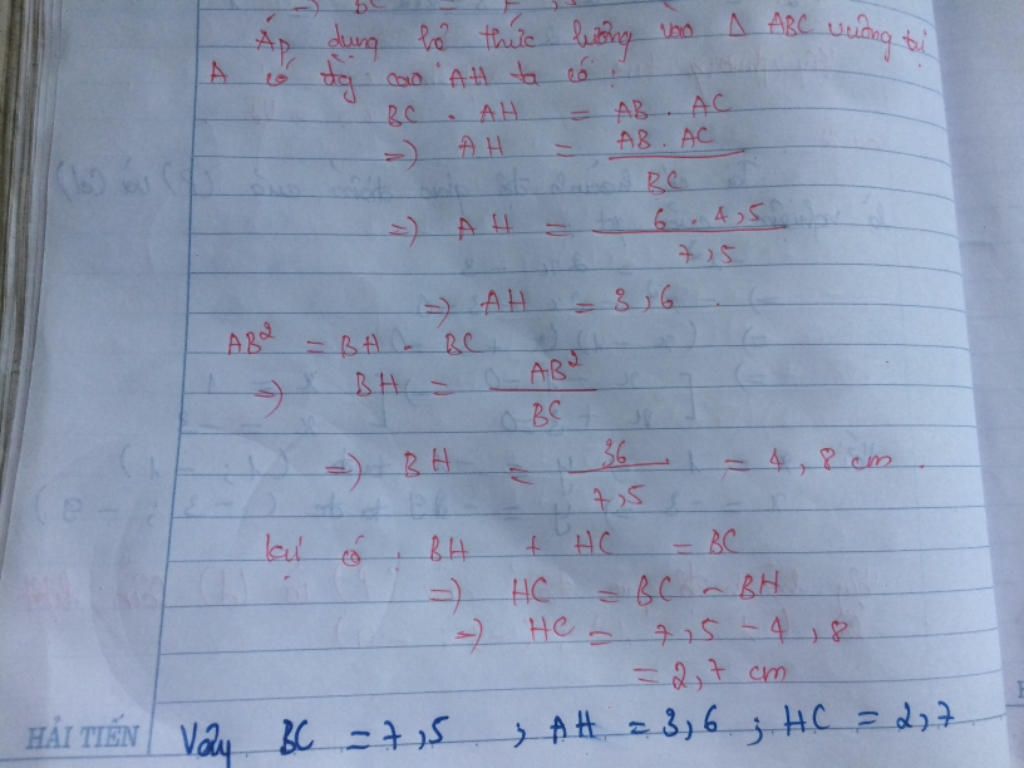 =) BC =
Áp dụng hệ thức lượng vào Δ ABC vuông tại
A có đg cao AH ta có :
BC . AH = AB . AC
=) AH = AB . AC / BC
=) AH = 6 . 4,5 / 7,5
=) AH = 3,6 .
AB² = BH . BC
=) BH = AB² / BC
=) BH = 36 / 7,5 = 4,8 cm .
có : BH + HC = BC
=) HC = BC - BH
=) HC = 7,5 - 4,8
= 2,7 cm
HẢI TIẾN
Vậy BC = 7,5 ; AH = 3,6 ; HC = 2,7